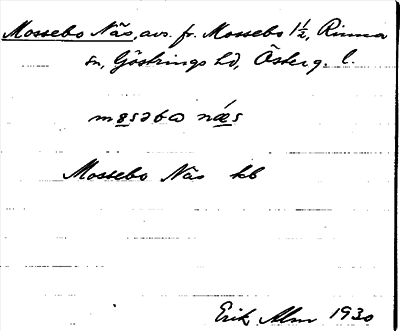 Mossebo Näs, avs. fr. Mossebo 1½, Rinna
sn, Göstrings hd, Österg. l.
mɷsəbɷ næ´s
Mossebo Näs kb
Erik Alm 1930